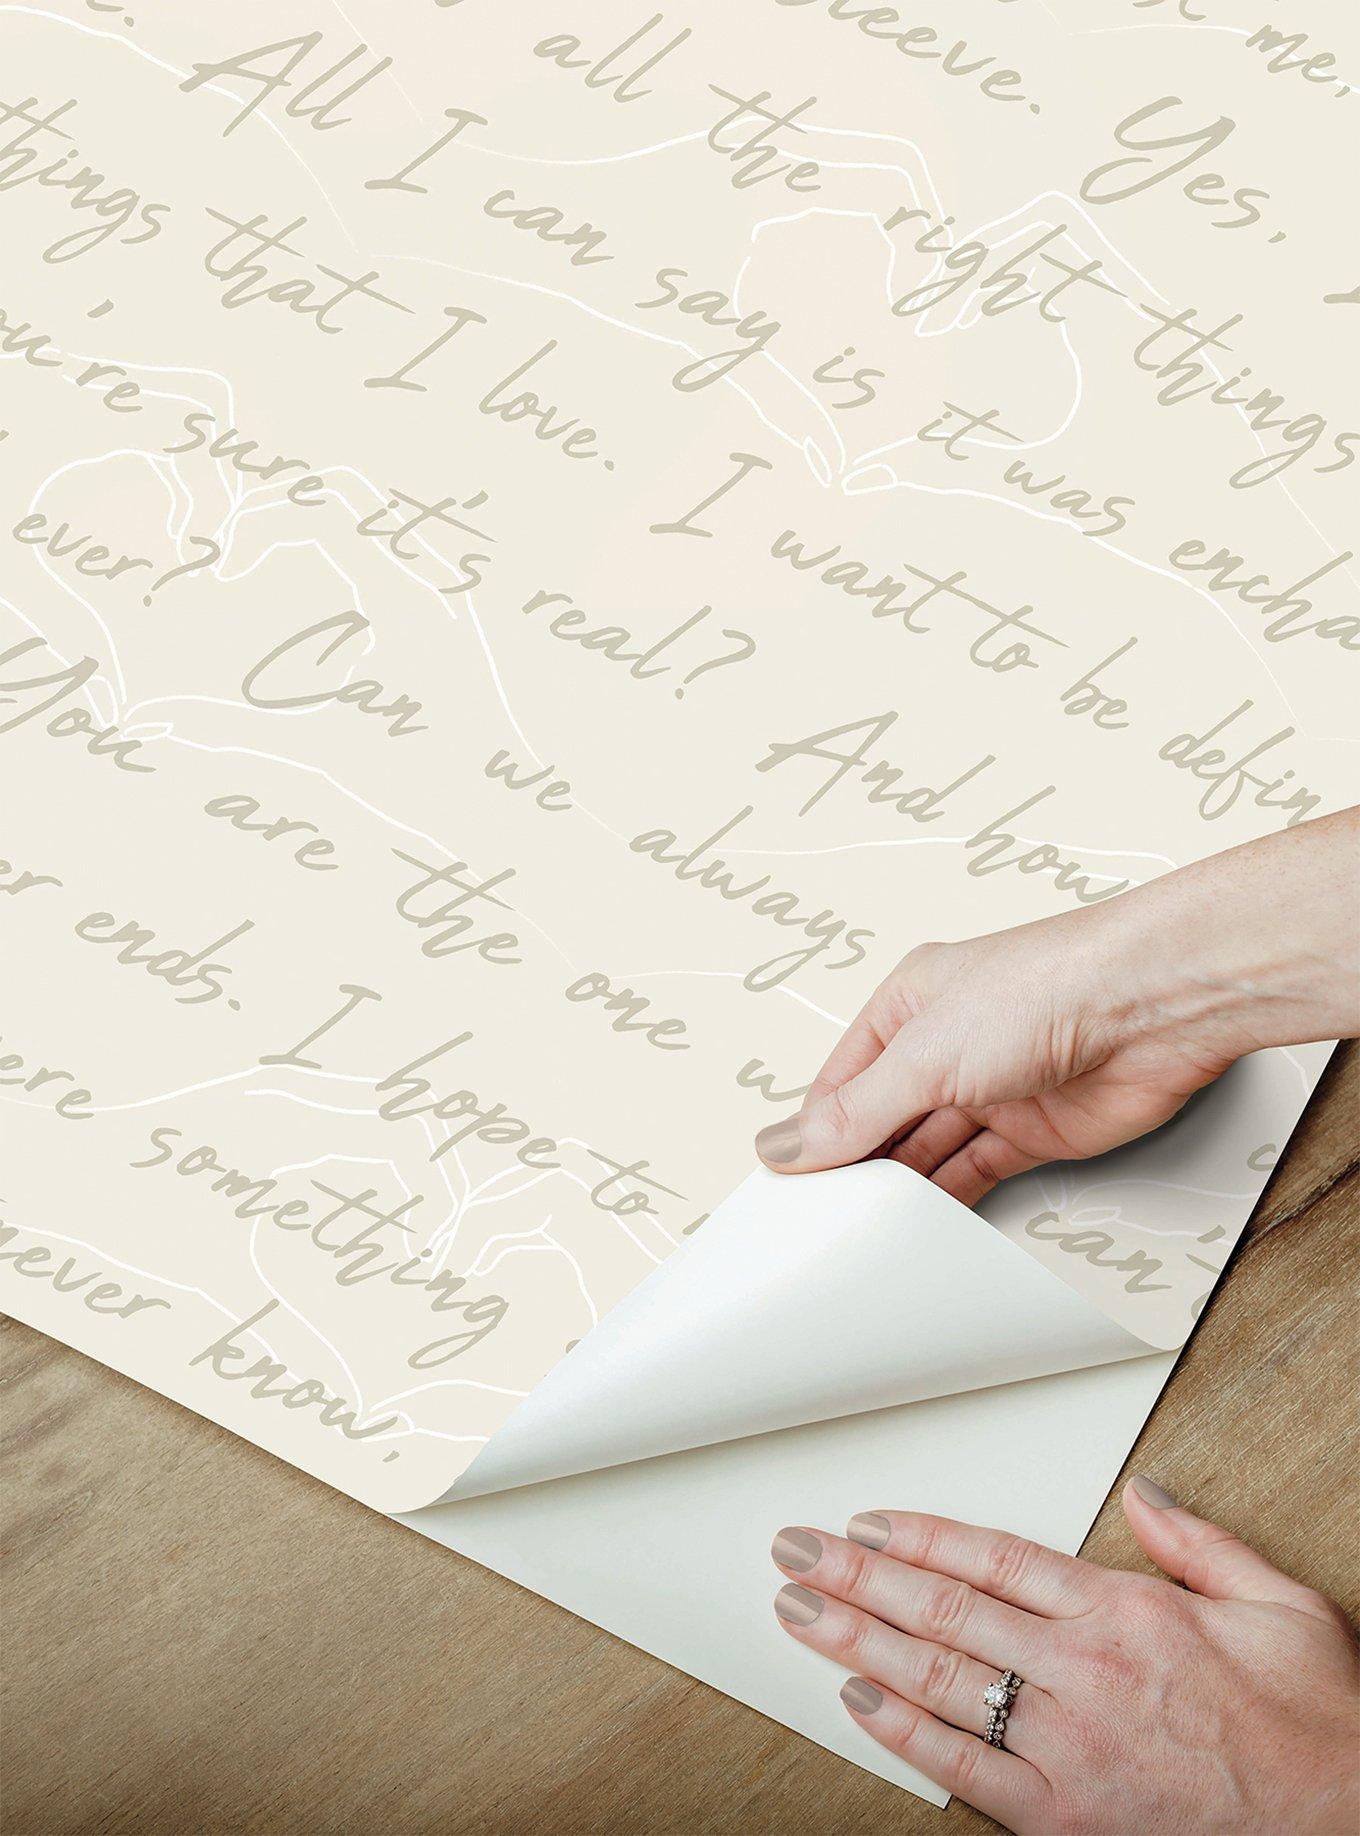 me,
eeve. Yes, I
all the right things
All I can say is it was encha
things that I love. I want to be defin
ou're sure it's real? And how
ever? Can we always
You are the one w can't
er ends. I hope to
ere something
never know,